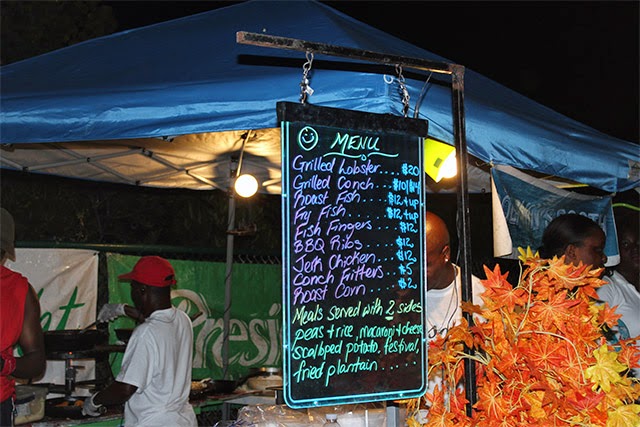 MENU
Grilled Lobster.... $20
Grilled Conch.... $10/$14
Roast Fish.... $12+up
Fry Fish..... $12+up
Fish Fingers..... $12
BBQ Ribs..... $12
Jerk Chicken.... $12
Conch Fritters.. $5
Roast Corn.... $2
Meals served with 2 sides
peas + rice, macaroni + cheese
scalloped potato, festival,
fried plantain......
Presi